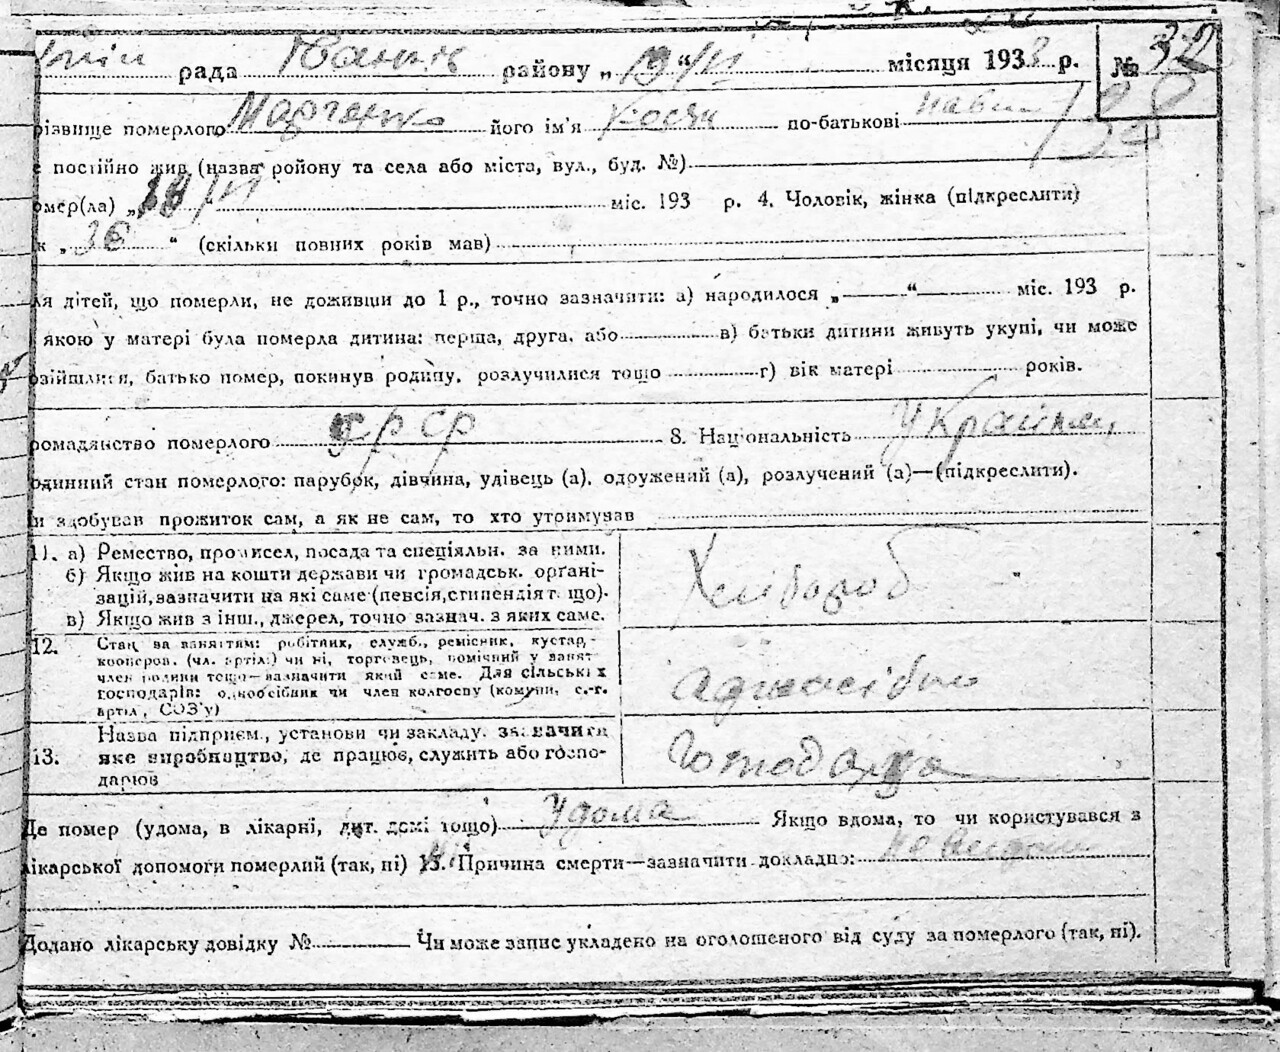 рада Іванків району „19“/VI місяця 1933 р. № 32
різвище померлого Марченко його ім'я по-батькові
є постійно жив (назва ройону та села або міста, вул., буд. №)
омер(ла) „18/VI міс. 193 р. 4. Чоловік, жінка (підкреслити)
к „36“ (скільки повних років мав)
ля дітей, що померли, не доживши до 1 р., точно зазначити: а) народилося „ “ міс. 193 р.
якою у матері була померла дитина: перша, друга, або в) батьки дитини живуть укупі, чи може
озійшлися, батько помер, покинув родину, розлучилися тощо г) вік матері років.
ромадянство померлого УСРР 8. Національність Українец,
одинний стан померлого: парубок, дівчина, удівець (а), одружений (а), розлучений (а)—(підкреслити).
и здобував прожиток сам, а як не сам, то хто утримував
11. а) Ремество, промисел, посада та спеціяльн. за ними.
б) Якщо жив на кошти держави чи громадськ. органі-
зацій, зазначити на які саме (пенсія, стипендія т. що).
в) Якщо жив з інш., джерел, точно зазнач. з яких саме.
Хлібороб
12. Стан за заняттям: робітник, служб., ремісник, кустар,-
кооперов. (чл. артілі) чи ні, торговець, помічний у занят
член родини тощо—зазначити який саме. Для сільських
господарів: одноосібник чи член колгоспу (комуни, с.-г.
артіл, СОЗ'у)
адноосібно
13. Назва підприєм., установи чи закладу. зазначити
яке виробництво, де працює, служить або госпо-
дарює
Господарка
Де помер (удома, в лікарні, дит. домі тощо) Удома Якщо вдома, то чи користувався з
лікарської допомоги померлий (так, ні) Ні 15. Причина смерти—зазначити докладно:
Додано лікарську довідку № Чи може запис укладено на оголошеного від суду за померлого (так, ні).